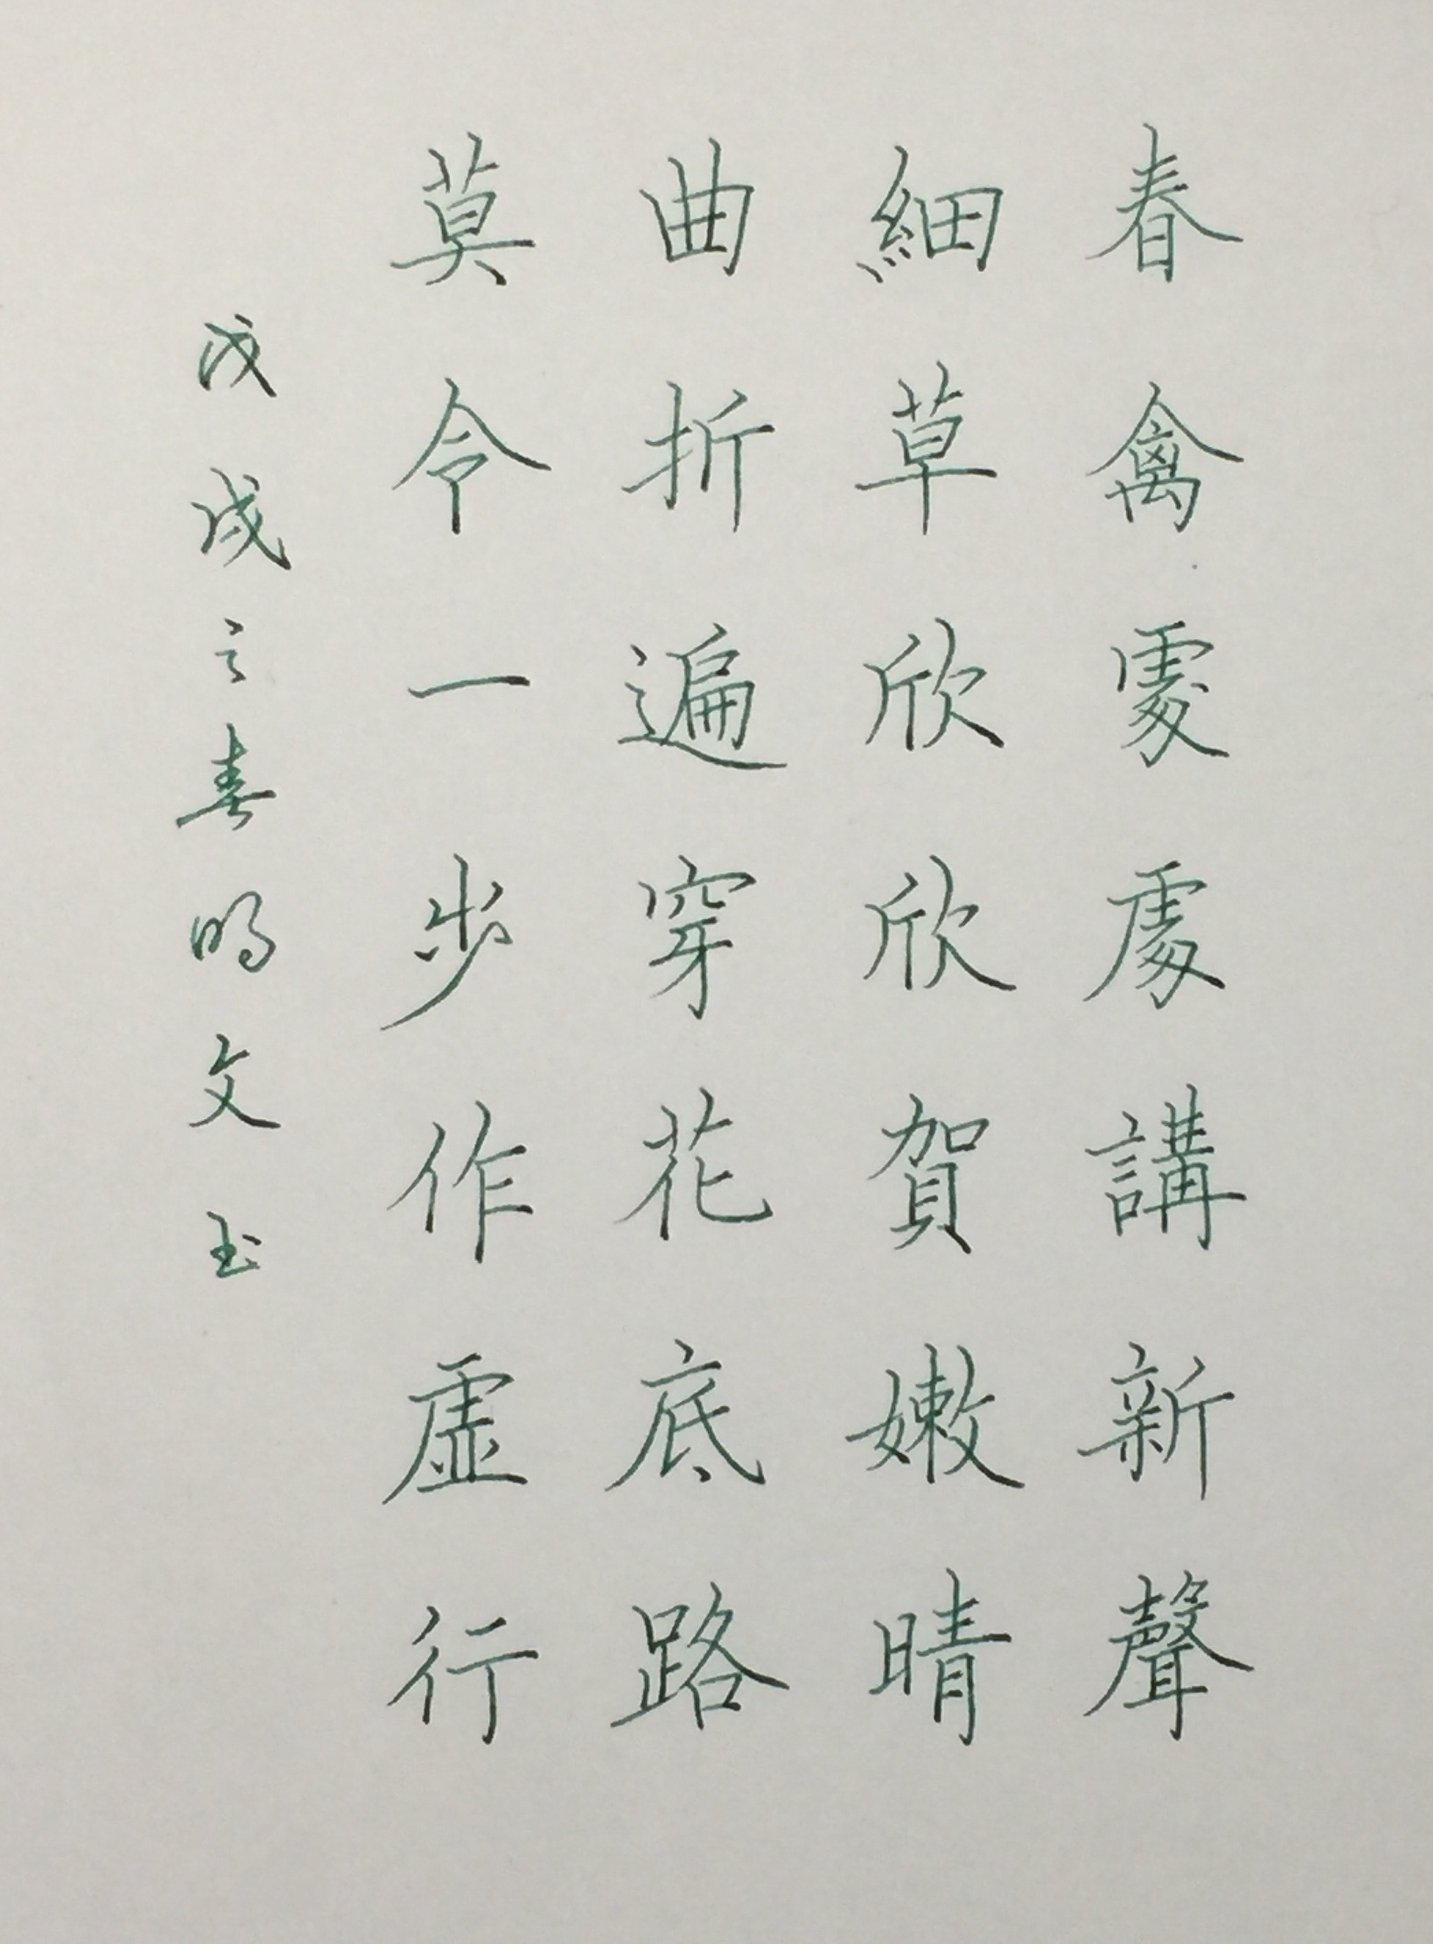 春禽處處講新聲
細草欣欣賀嫩晴
曲折遍穿花底路
莫令一步作虛行
戊戌之春鳴文書